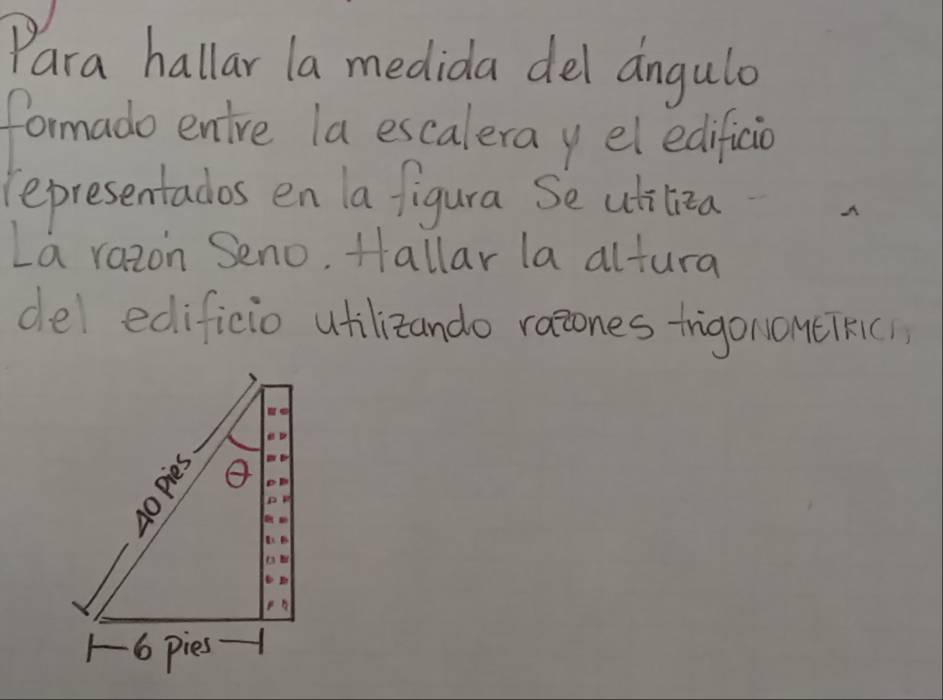 Para hallar la medida del ángulo
formado entre la escalera y el edificio
representados en la figura Se utiliza
La razón Seno. Hallar la altura
del edificio utilizando razones
40 pies
θ
6 pies